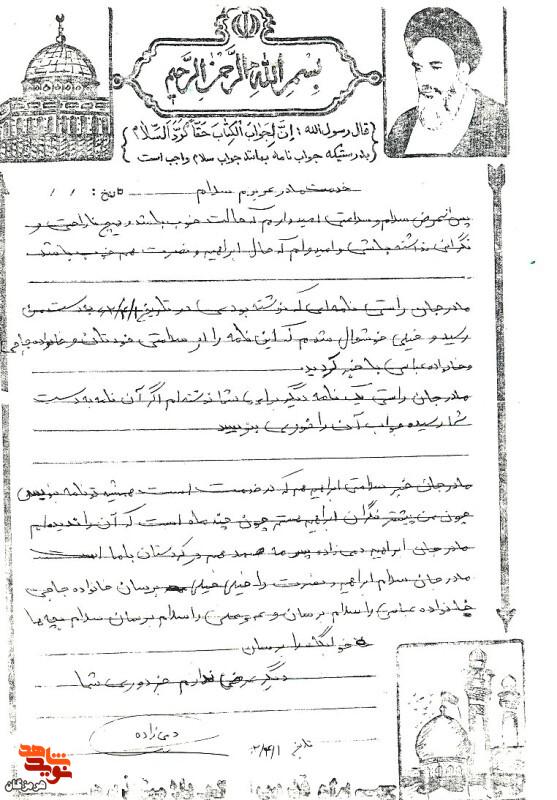 بسم الله الرحمن الرحیم
قال رسول الله : اِنَّ لِجَوابِ الکِتابِ حَقّاً کَرَدِّ السَّلام
بدرستیکه جواب نامه بمانند جواب سلام واجب است
خدمت مادر عزیزم سلام تاریخ : / /
پس از عرض سلام و سلامتی امیدوارم که حالت خوب باشد و هیچ ناراحتی و
نگرانی نداشته باشی و امیدوارم که حال ابراهیم و نصرت هم خوب باشد.
مادر جان راستی نامه‌ای که نوشته بودی در تاریخ بدست من
رسید و خیلی خوشحال شدم که این نامه را از سلامتی خودتان و خانواده حاجی
و خانواده عباسی با خبر کردید.
مادر جان راستی یک نامه دیگر برای شما نوشته‌ام اگر آن نامه به دست
شما رسیده جواب آن را فوری بنویسید
مادر جان خبر سلامتی ابراهیم هم که در خدمت است همیشه در نامه بنویس
چون من بیشتر نگران ابراهیم هستم چون چند ماه است که آن را ندیده‌ام
مادر جان ابراهیم دمی زاده پسر هم در کردستان با ما است
مادر جان سلام ابراهیم و نصرت را خیلی خیلی برسان خانواده حاجی
خانواده عباسی را سلام برسان و را سلام برسان سلام بچه‌ها
را برسان
دیگر عرضی ندارم جز دوری شما
دمی زاده
تاریخ ۲/۴/۱
نوید شاهد
هرمزگان